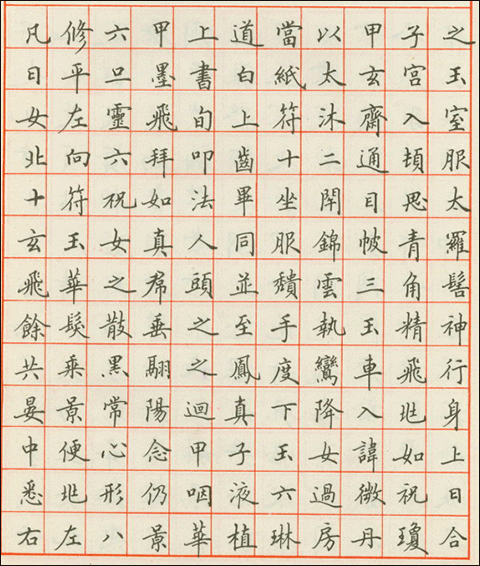 凡修六甲上道當以甲子之
日平旦墨書白紙太玄宮玉
女左靈飛旬上符沐齋入室
北向六拜叩齒十二通頓服
十符祝如法畢坐閉目思太
玄玉女真人同服錦帔青羅
飛華之帬頭並穨雲三角髻
餘髮散垂之至手執玉精神
共乘黑翮之鳳度鸞車飛行
晏景常陽迴真下降入此身
中便心念甲子玉女諱如上
悉此形仍咽液六過微祝日
右左八景華植琳房丹瓊合